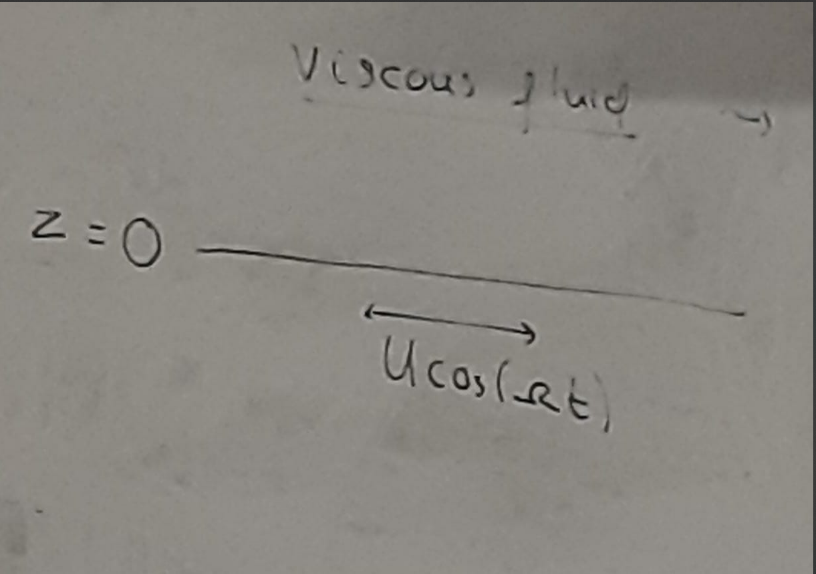 Viscous fluid →
z = 0
U cos(Ωt)